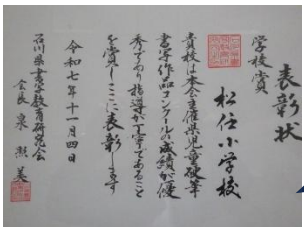 表彰状
学校賞
松任小学校
貴校は本会主催県児童硬筆
書写作品コンクールの成績が優
秀であり指導が丁寧であること
を賞しここに表彰します
令和七年十一月四日
石川県書写教育研究会
会長 泉 熙美